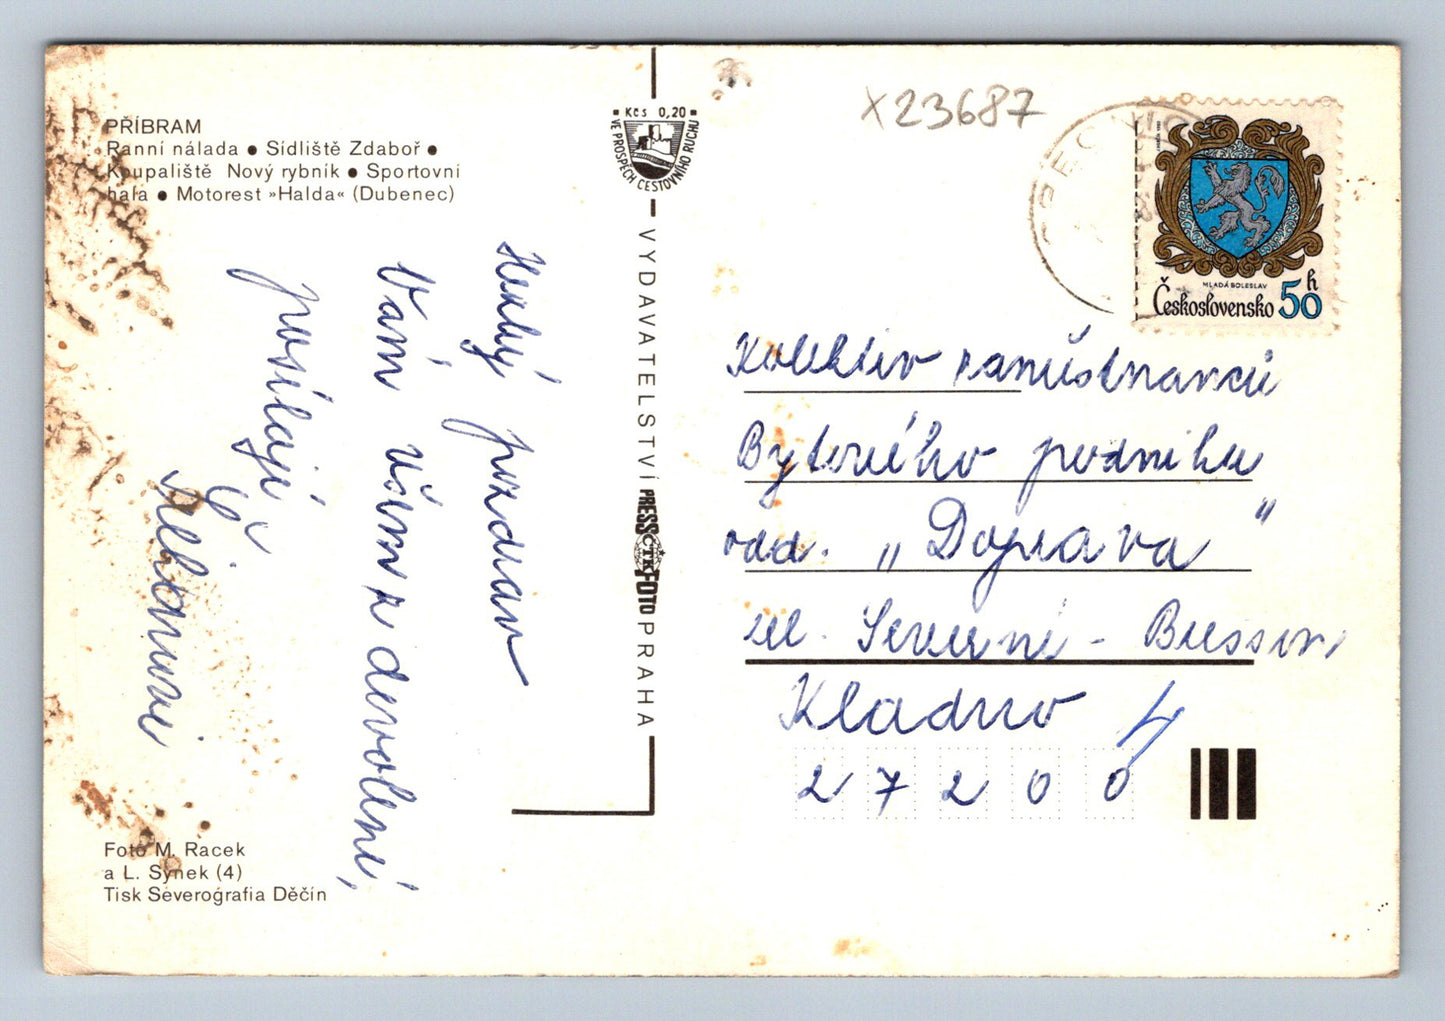 PŘÍBRAM
Ranní nálada ● Sídliště Zdaboř ●
Koupaliště Nový rybník ● Sportovní
hala ● Motorest »Halda« (Dubenec)
Kčs 0,20
VE PROSPĚCH CESTOVNÍHO RUCHU
X23687
MLADÁ BOLESLAV
Československo 50 h
Hezký pozdrav
Vám všem z dovolené,
posílají
VYDAVATELSTVÍ PRESSFOTO PRAHA
ČTK
Kolektiv zaměstnanců
Bytového podniku
odd. „Doprava"
ul. Severní - Bresson
Kladno 4
27200
Foto M. Racek
a L. Synek (4)
Tisk Severografia Děčín